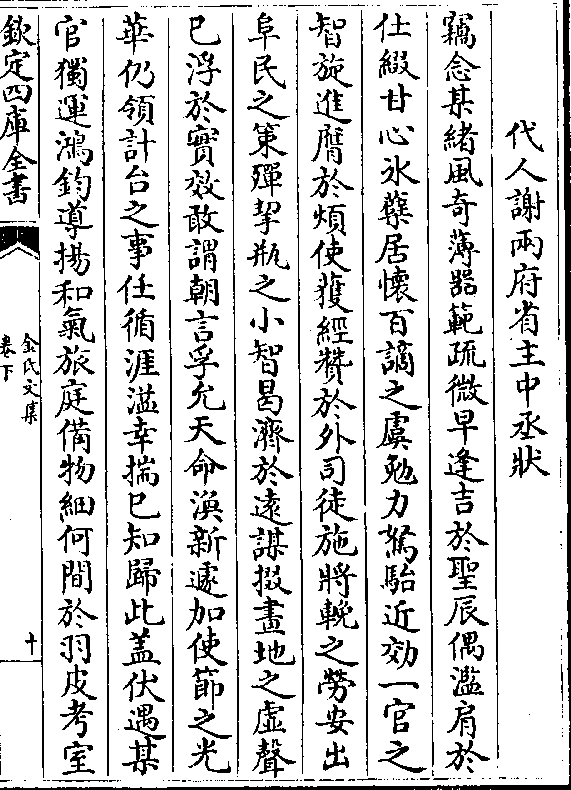 代人謝兩府省主中丞狀
竊念某緒風奇薄器範疏微早逢吉於聖辰偶濫肩於
仕綴甘心氷蘖居懷百謫之虞勉力駑駘近効一官之
智旋進膺於煩使獲經贊於外司徒施將輓之勞安出
阜民之策殫挈瓶之小智曷濟於遠謀掇畫地之虛聲
已浮於實效敢謂朝言孚允天命渙新遽加使節之光
華仍領計台之事任循涯溢幸揣已知歸此盖伏遇某
官獨運鴻鈞導揚和氣旅庭備物細何間於羽皮考室
欽定四庫全書
金氏文集
卷下
十